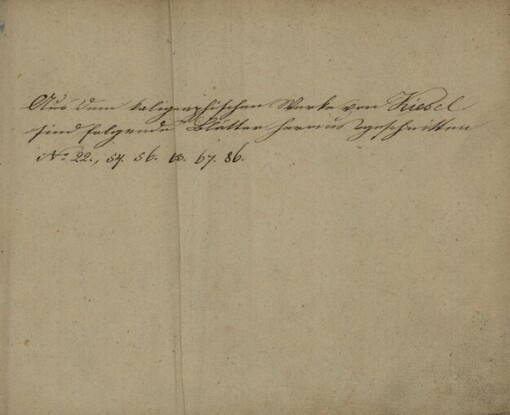 Aus dem kaligraphischen Werke von Kiesel
sind folgende Blätter heraus geschnitten
No. 22., 54. 56. 67. 86.